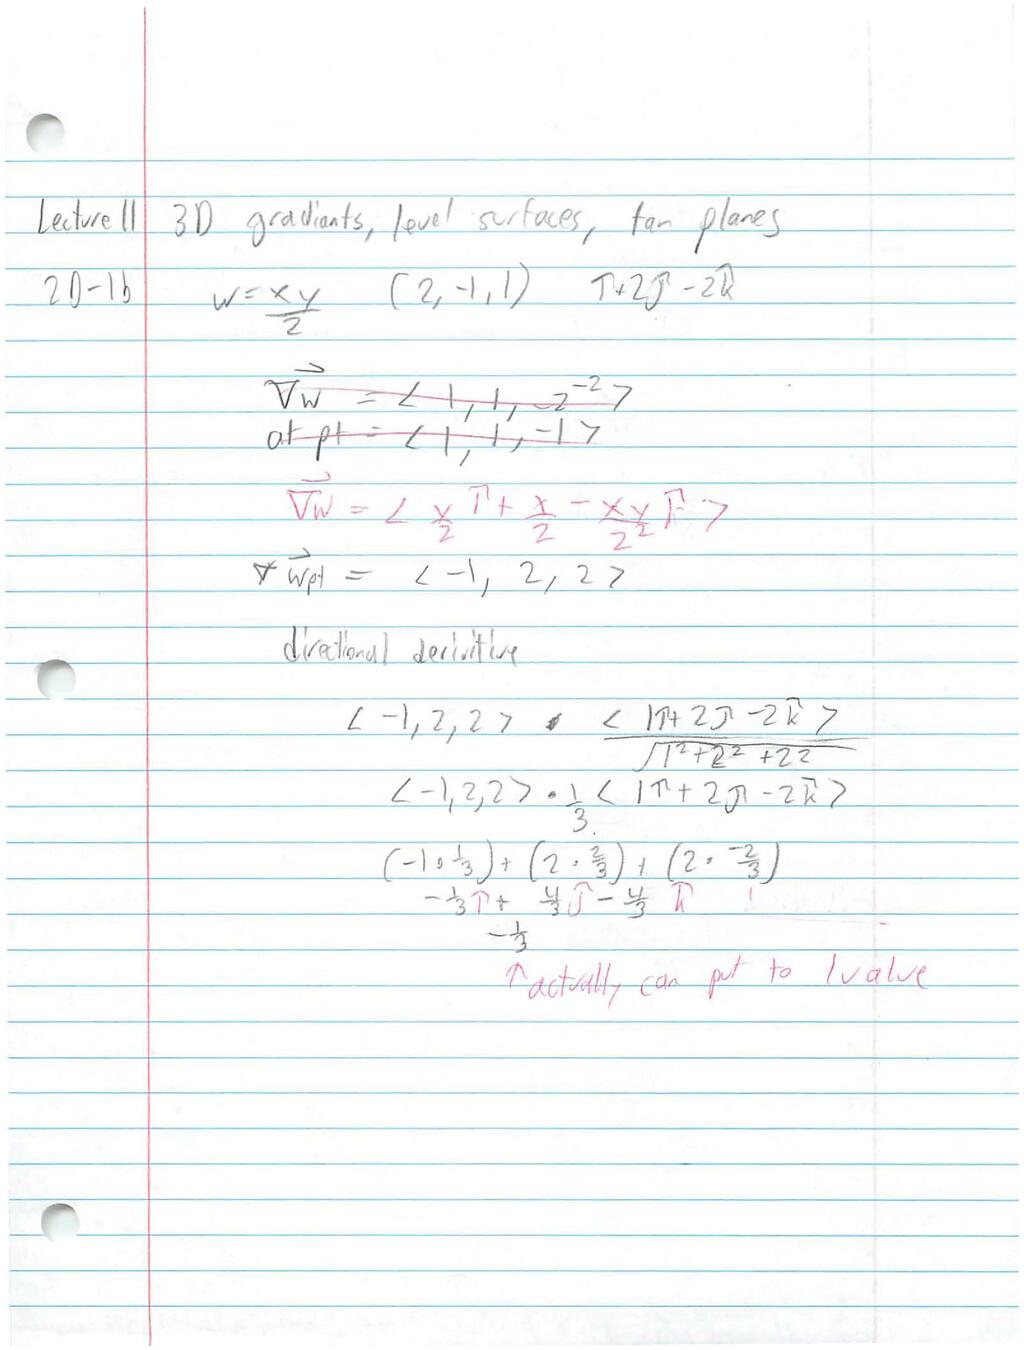 Lecture 11 3D gradiants, level surfaces, tan planes
2D-1b w = xy/2 (2, -1, 1) î+2ĵ-2k̂
∇w = < 1, 1, -2⁻² >
at pt = < 1, 1, -1 >
∇w = < y/2 î + x/2 - xy/2² k̂ >
∇w pt = < -1, 2, 2 >
directional derivitive
< -1, 2, 2 > • < 1î+2ĵ-2k̂ > / √1²+2²+2²
< -1, 2, 2 > • 1/3 < 1î + 2ĵ - 2k̂ >
(-1 • 1/3) + (2 • 2/3) + (2 • -2/3)
-1/3 î + 4/3 ĵ - 4/3 k̂
-1/3
↑ actually can put to 1 value